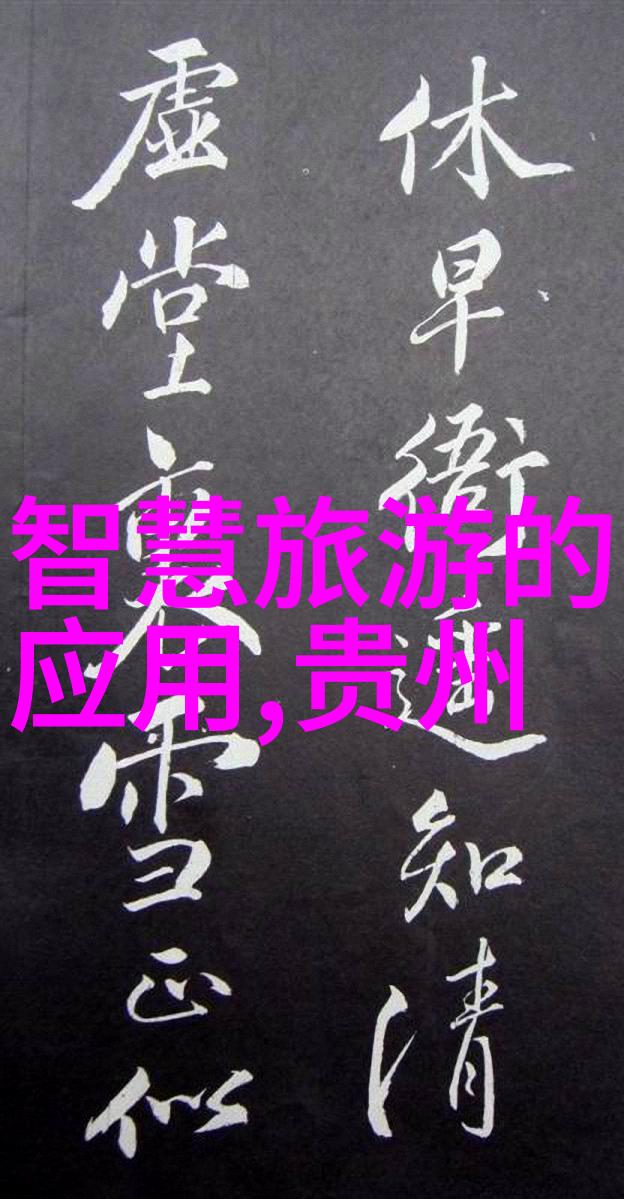 休早衙遥知清
虚堂裏雪正似
智慧旅游的
应用,贵州